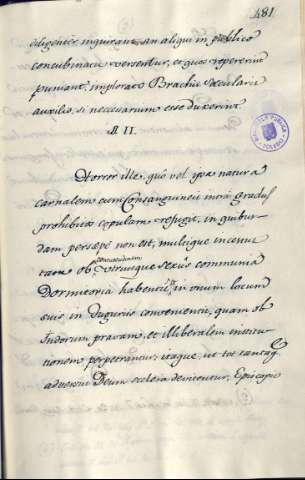 481
diligenter inquirant an aliqui in publico
concubinatu versentur, et quos repererint
puniant, implorato Brachii Sæcularis
auxilio, si necessarium esse duxerint
II.
Horror ille, quo vel ipsa natura
carnalem cum Consanguineis intra gradus
prohibitos copulam refugit, in quibus-
dam persæpe non est, multique incestu
ob consuetudinem utriusque sexûs communia
Dormitoria habentis, in unum locum
suis in Tuguriis convenienti, quam ob
Indorum pravam, et illiberalem institu-
tionem perpetrantur, itaque, ut tot tantaq
adversus Deum scelera devitentur, Episcopis